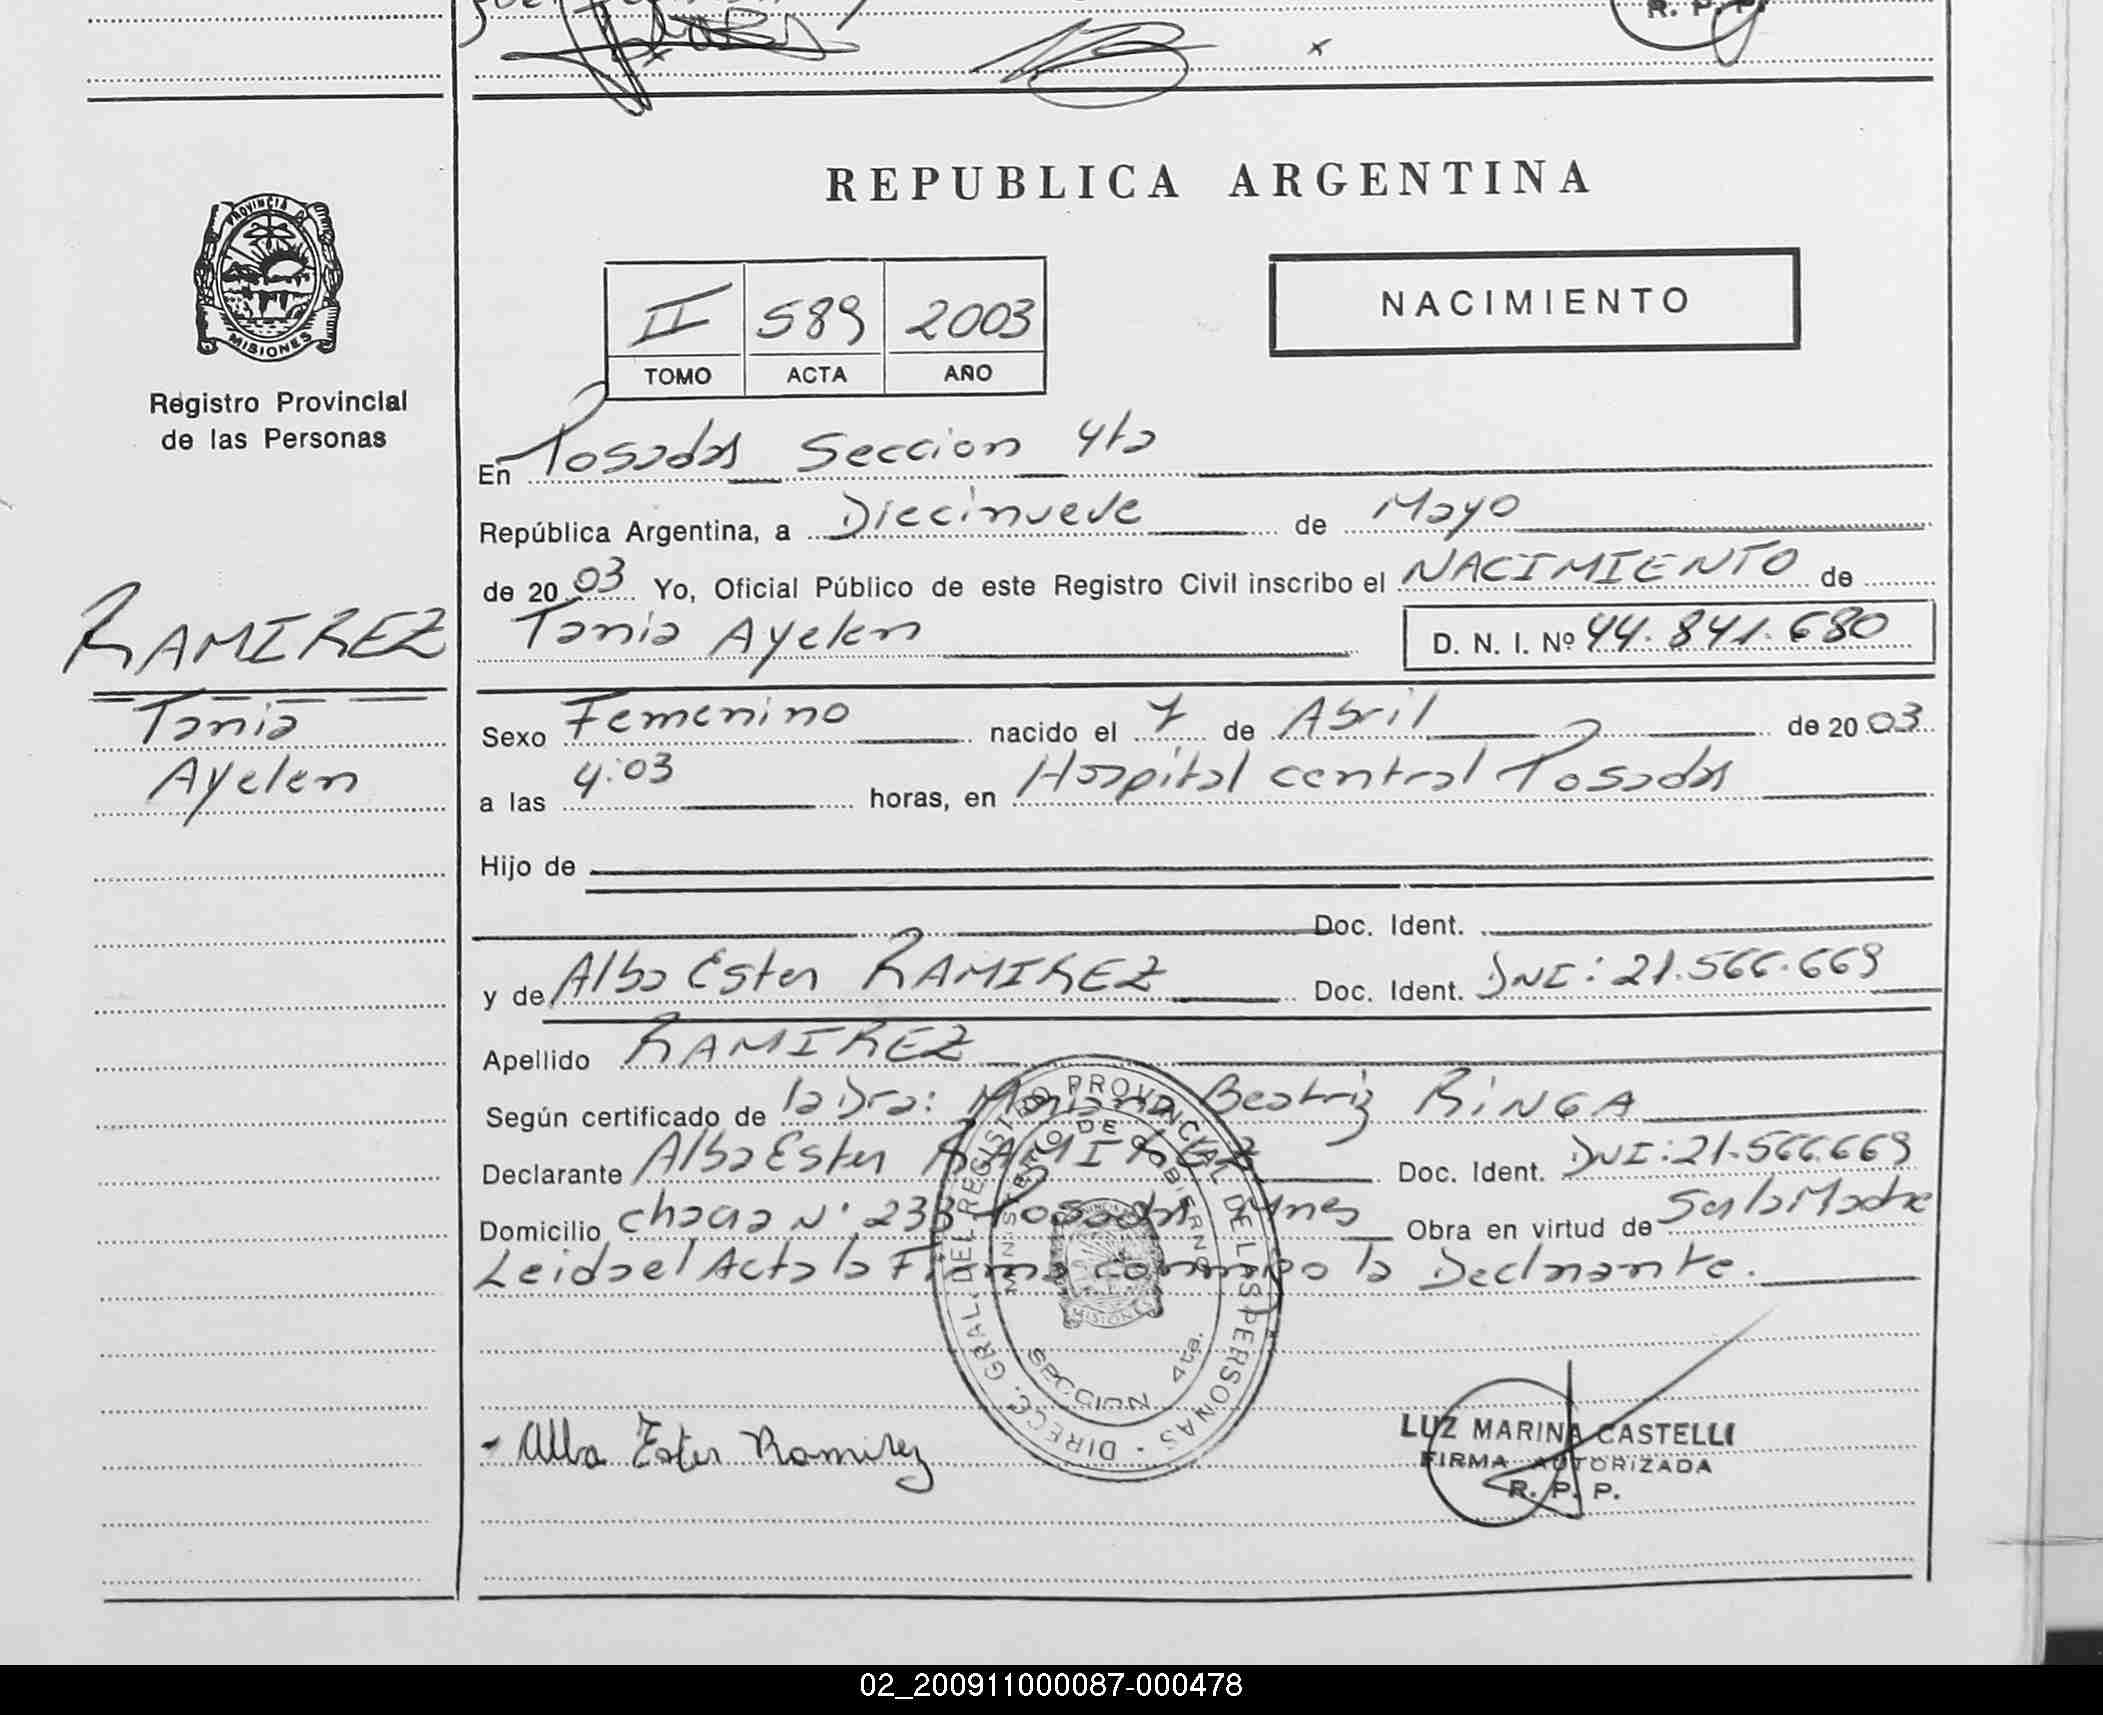 R. P. P.
REPUBLICA ARGENTINA
PROVINCIA DE
MISIONES
Registro Provincial
de las Personas
II 589 2003
TOMO ACTA AÑO
NACIMIENTO
En Posadas Seccion 4ta
República Argentina, a Diecinueve de Mayo
de 20 03 Yo, Oficial Público de este Registro Civil inscribo el NACIMIENTO de
Tania Ayelen D. N. I. Nº 44.841.680
RAMIREZ
Tania
Ayelen
Sexo Femenino nacido el 7 de Abril de 20 03
a las 4:03 horas, en Hospital central Posadas
Hijo de
Doc. Ident.
y de Alba Ester RAMIREZ Doc. Ident. DNI: 21.566.669
Apellido RAMIREZ
Según certificado de la Dra: Mariana Beatriz RINGA
Declarante Alba Ester RAMIREZ Doc. Ident. DNI: 21.566.669
Domicilio chacra N° 233 Posadas Mnes Obra en virtud de Ser la Madre
Leida el Acta la Firma conmigo la Declarante.
DIRECC. GRAL. DEL REGISTRO PROVINCIAL DE LAS PERSONAS
MINISTERIO DE GOBIERNO
MISIONES
SECCION 4ta.
Alba Ester Ramirez
LUZ MARINA CASTELLI
FIRMA AUTORIZADA
R. P. P.
02_200911000087-000478